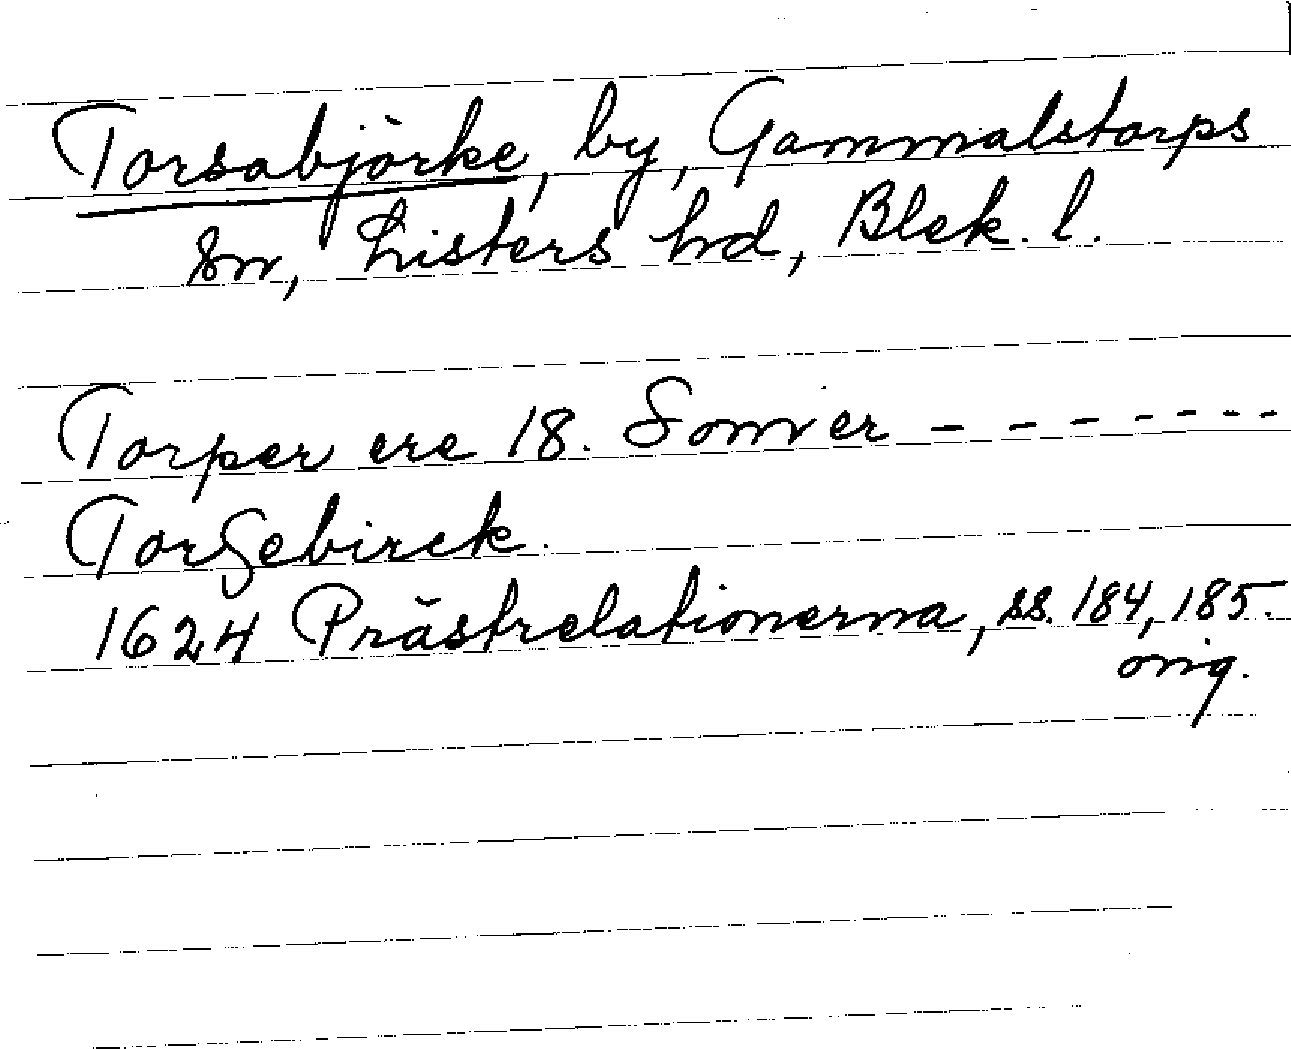 Torsabjörke, by, Gammalstorps
sn, Listers hd, Blek. l.
Torper ere 18. Somer - - - - - - -
Torsebirck.
1624 Prästrelationerna, ss. 184, 185.
orig.